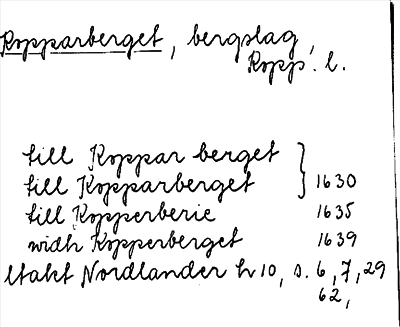 Kopparberget, bergslag,
Kopp. l.
till Koppar berget
till Kopparberget } 1630
till Kopperberie 1635
widh Kopperberget 1639
Utakt Nordlander h 10, s. 6, 7, 29
62,